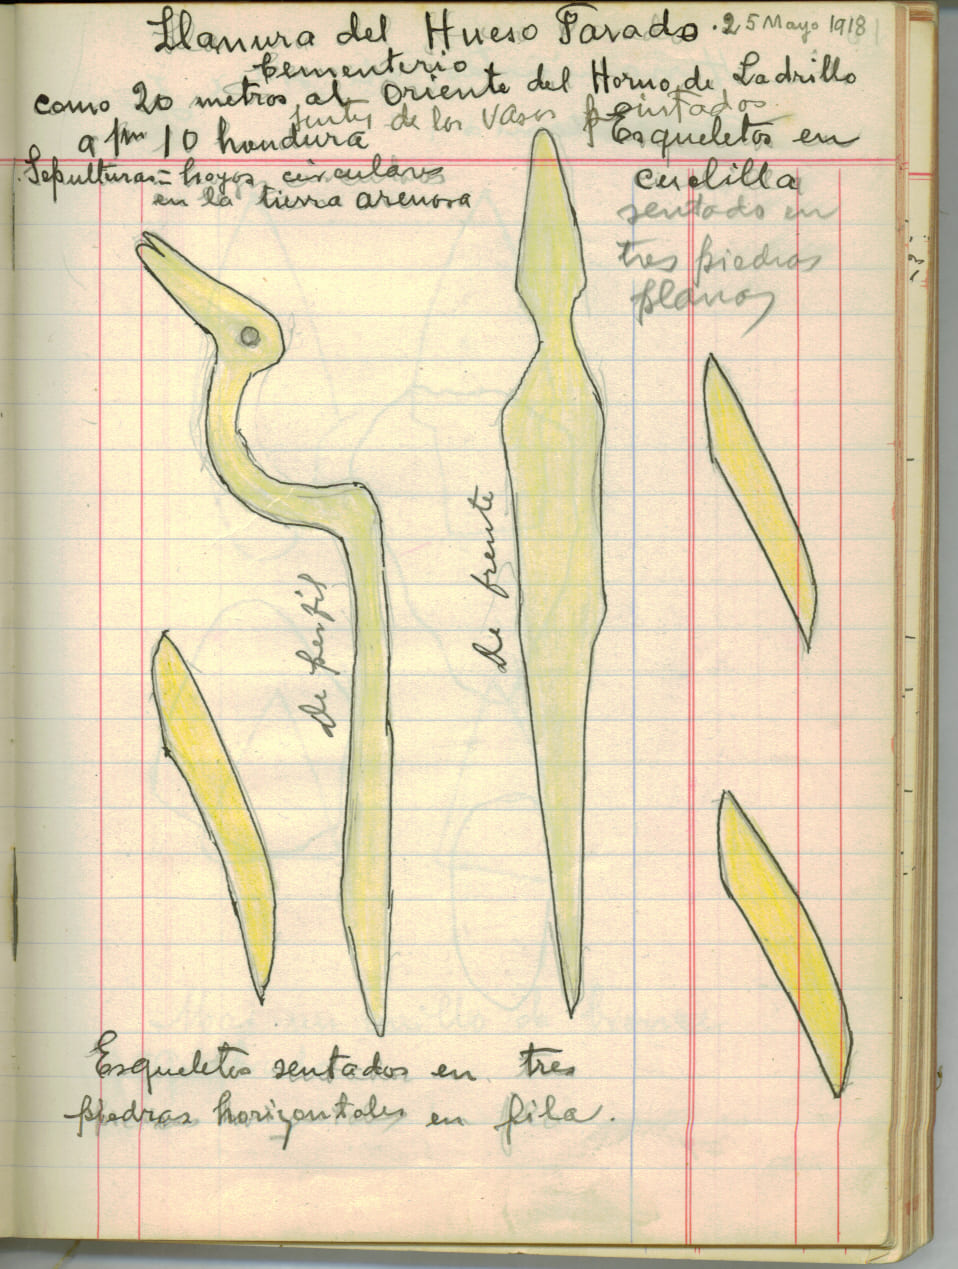 Llanura del Hueso Parado. 25 Mayo 1918
Cementerio
como 20 metros al Oriente del Horno de Ladrillo
juntos de los Vasos pintados
a 1m 10 hondura
Esqueletos en
cuclilla
Sepulturas = hoyos circulares
en la tierra arenosa
sentado en
tres piedras
planas
De perfil
De frente
Esqueletos sentados en tres
piedras horizontales en fila.